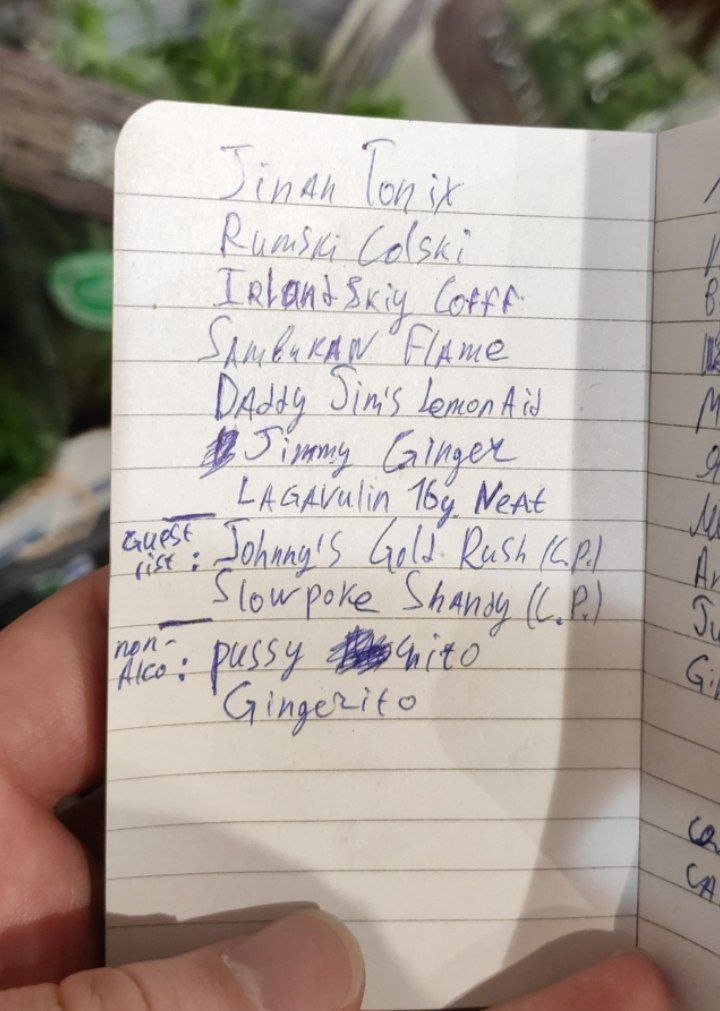 Jinan Tonix
Rumski Colski
Irlandskiy Cofff
SAmbuKAN Flame
DAddy Jim's LemonAid
Jimmy Ginger
LAGAVulin 16y NeAt
Guest list: Johnny's Gold Rush (C.P.)
Slowpoke Shandy (C.P.)
non-Alco: pussy hito
Gingerito